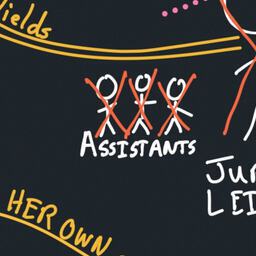 ields
ASSISTANTS
JU
LEI
HER OWN